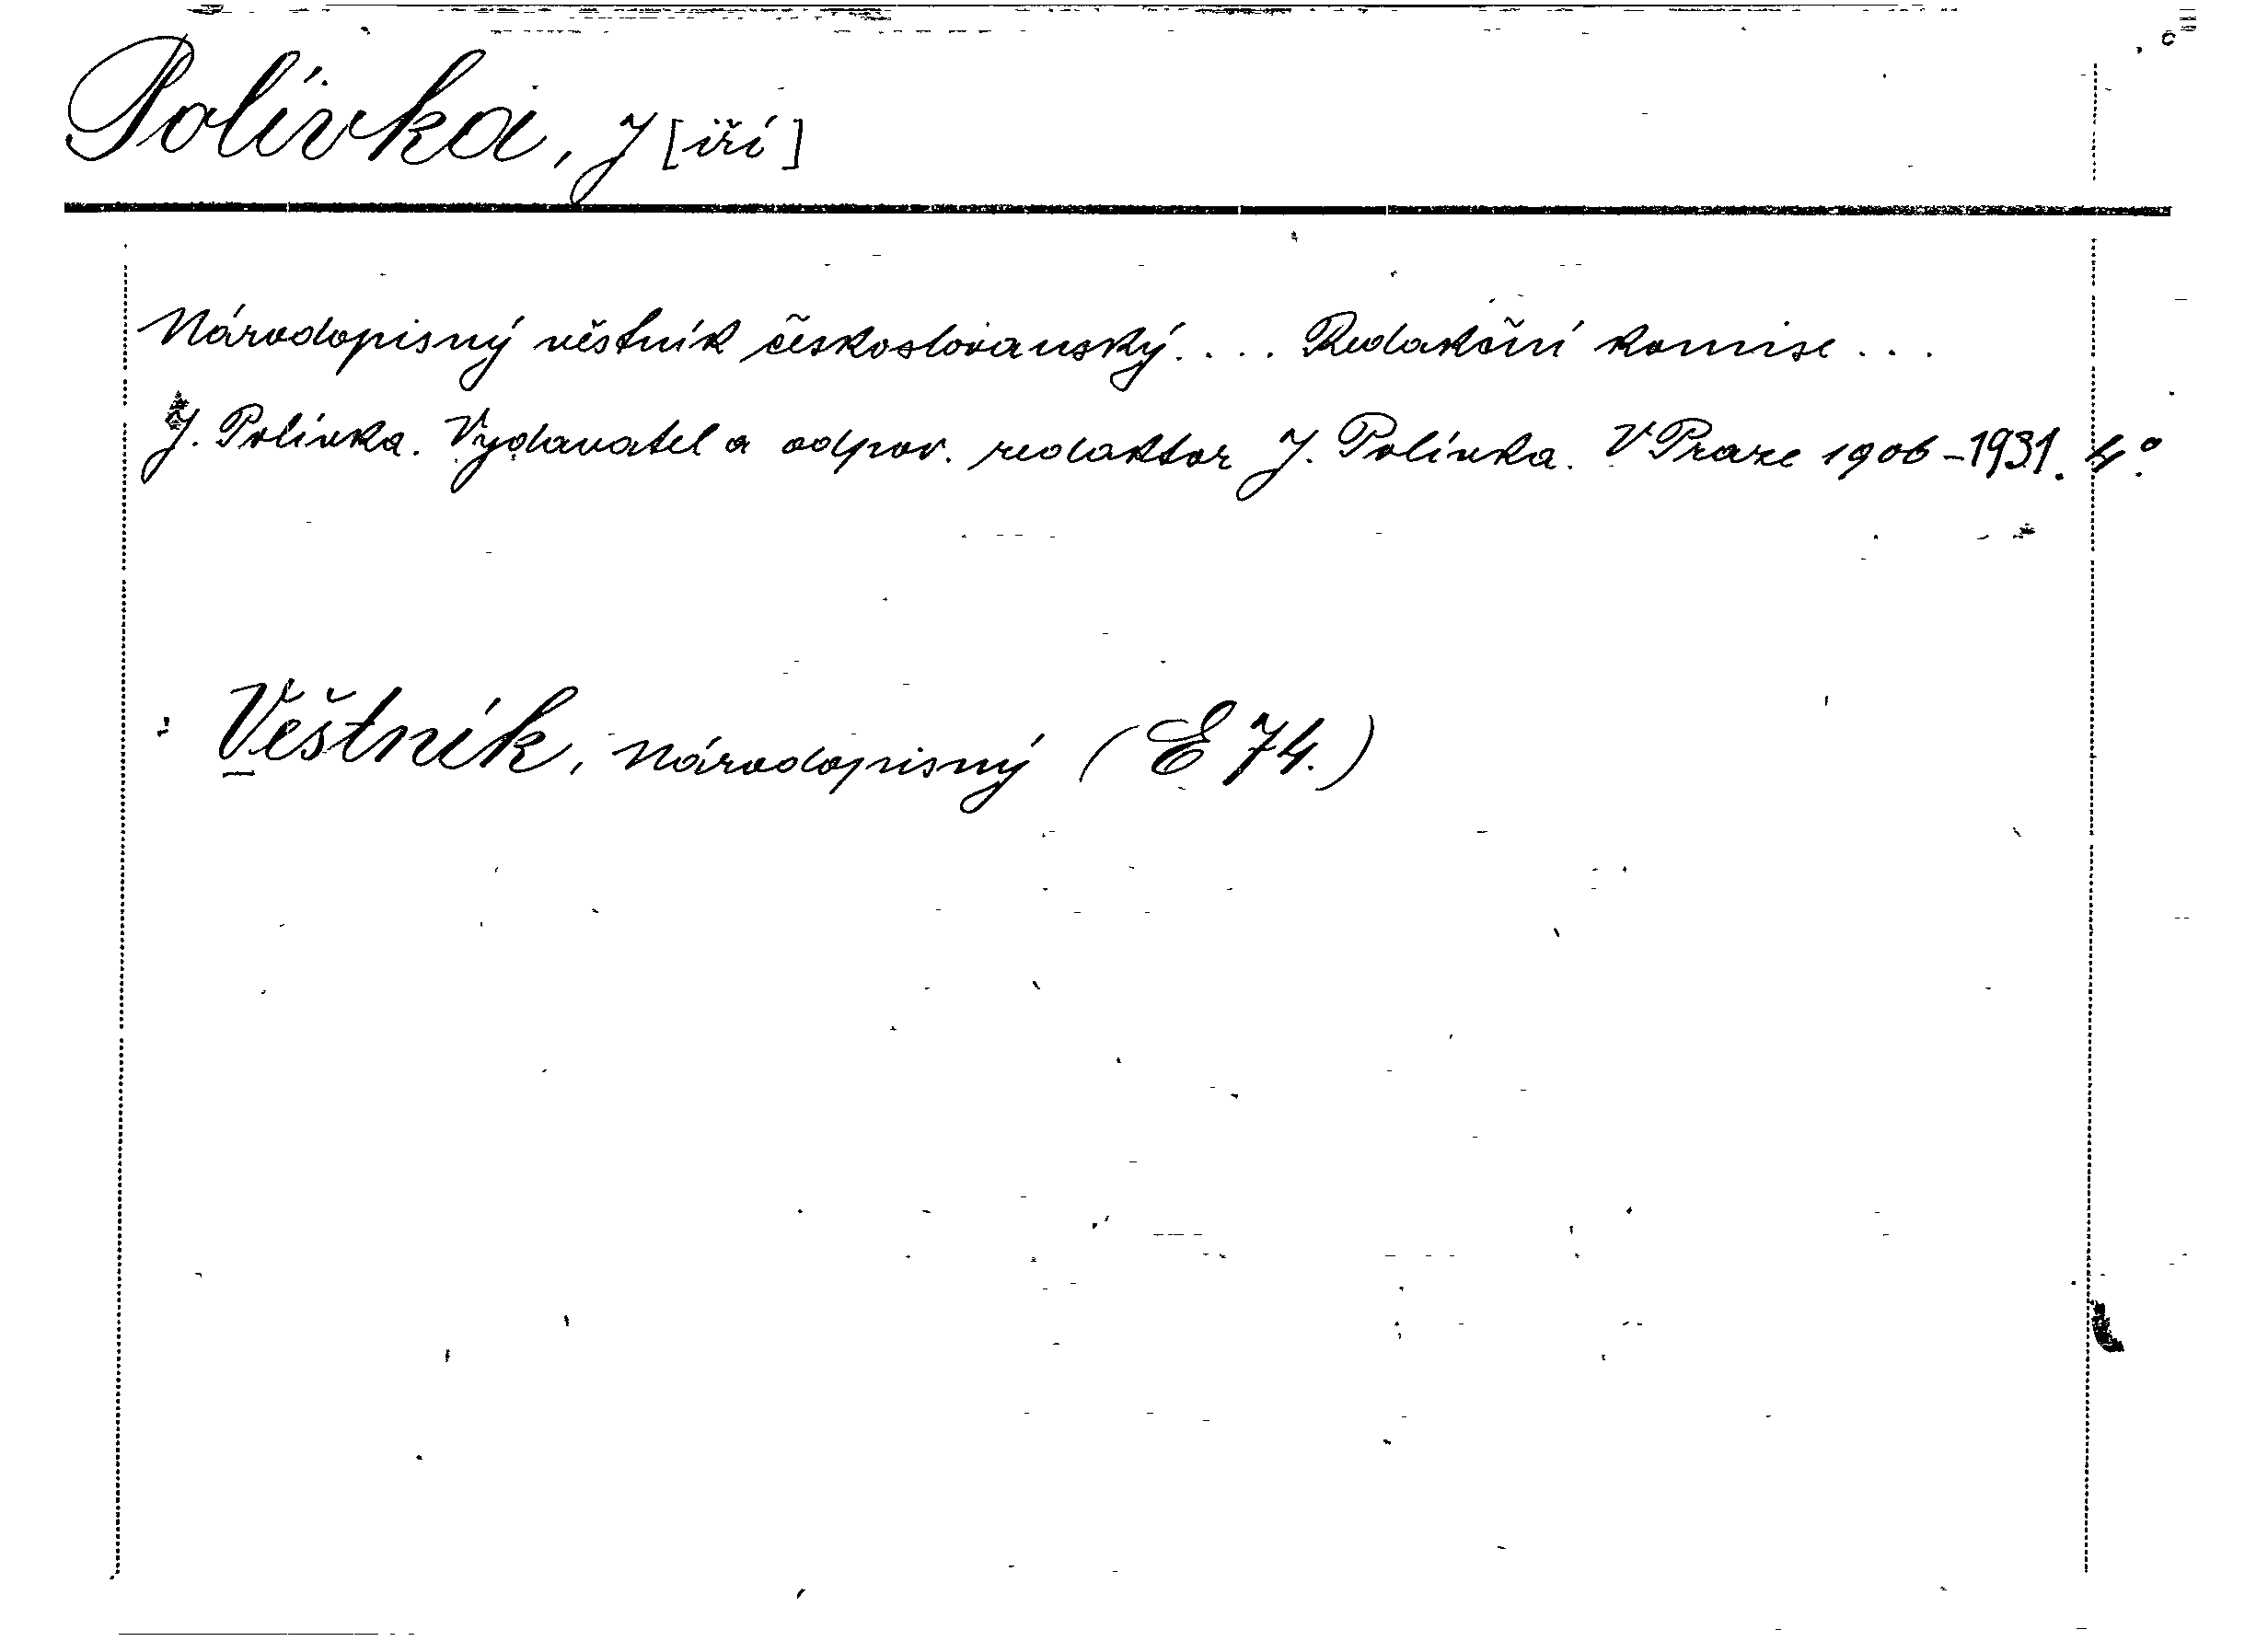 Polívka, J[iří]
Národopisný věstník českoslovanský.... Redakční komise...
J. Polívka. Vydavatel a odpov. redaktor J. Polívka. V Praze 1906-1931. 4°.
Věštník, národopisný (E 74.)